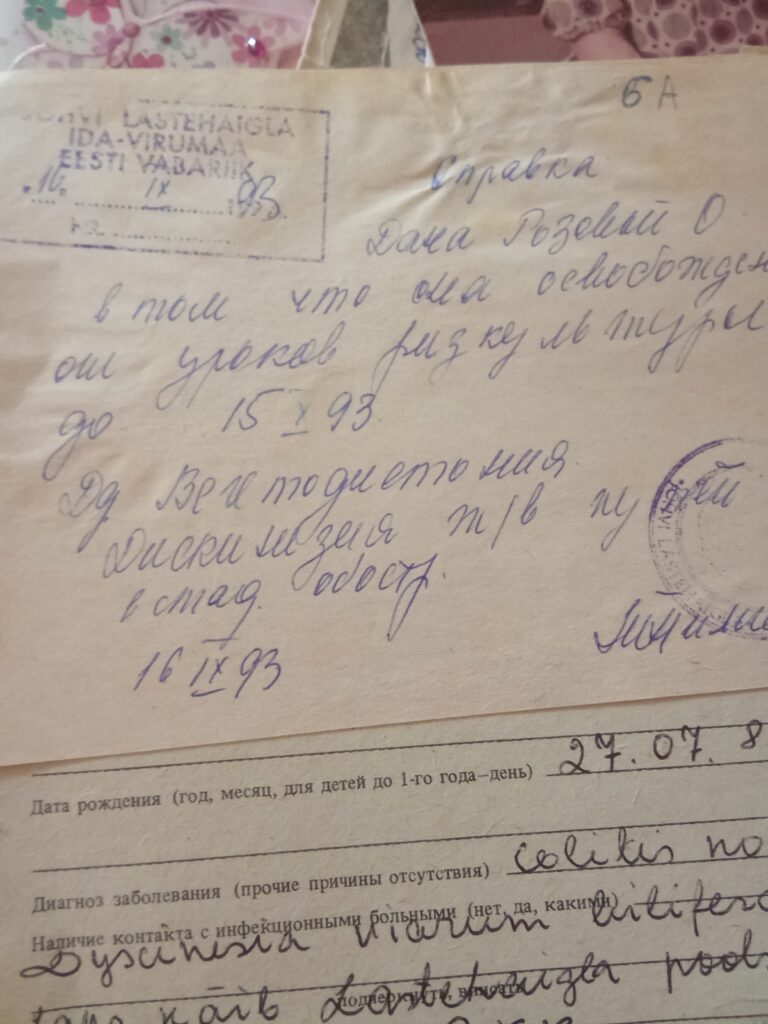 6 А
JÕHVI LASTEHAIGLA
IDA-VIRUMAA
EESTI VABARIIK
"16" IX 1993.
Nr.
Справка
Дана Розовой О
в том что она освобожден
от уроков физкультуры
до 15 X 93
Дз. Вегетодистония
Дискинезия ж/в путей
в стад. обостр.
16 IX 93
27.07.8
Дата рождения (год, месяц, для детей до 1-го года–день)
colitis
Диагноз заболевания (прочие причины отсутствия)
Наличие контакта с инфекционными больными (нет, да, какими)
Dyscinesia viarum bilifera
käib Lastehaigla
подчеркнуть, вписать